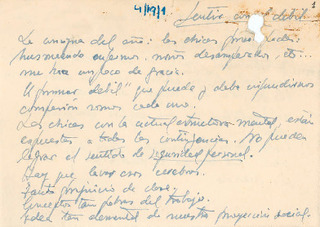 4/12/71
1
Sentir con el debil.
La semana del año: los chicos
buscando enfermos, niños desamparados, etc...
me hace un poco de gracia.
El primer "debil" que puede y debe infundirnos
compasión somos cada uno.
Los chicos con la actual estructura mental, están
expuestos a todas las contingencias. No pueden
lograr el sentido de seguridad personal.
Hay que lavar esos cerebros.
Tanto prejuicio de clase,
Concepto tan pobre del trabajo.
Idea tan demencial de nuestra proyección social.